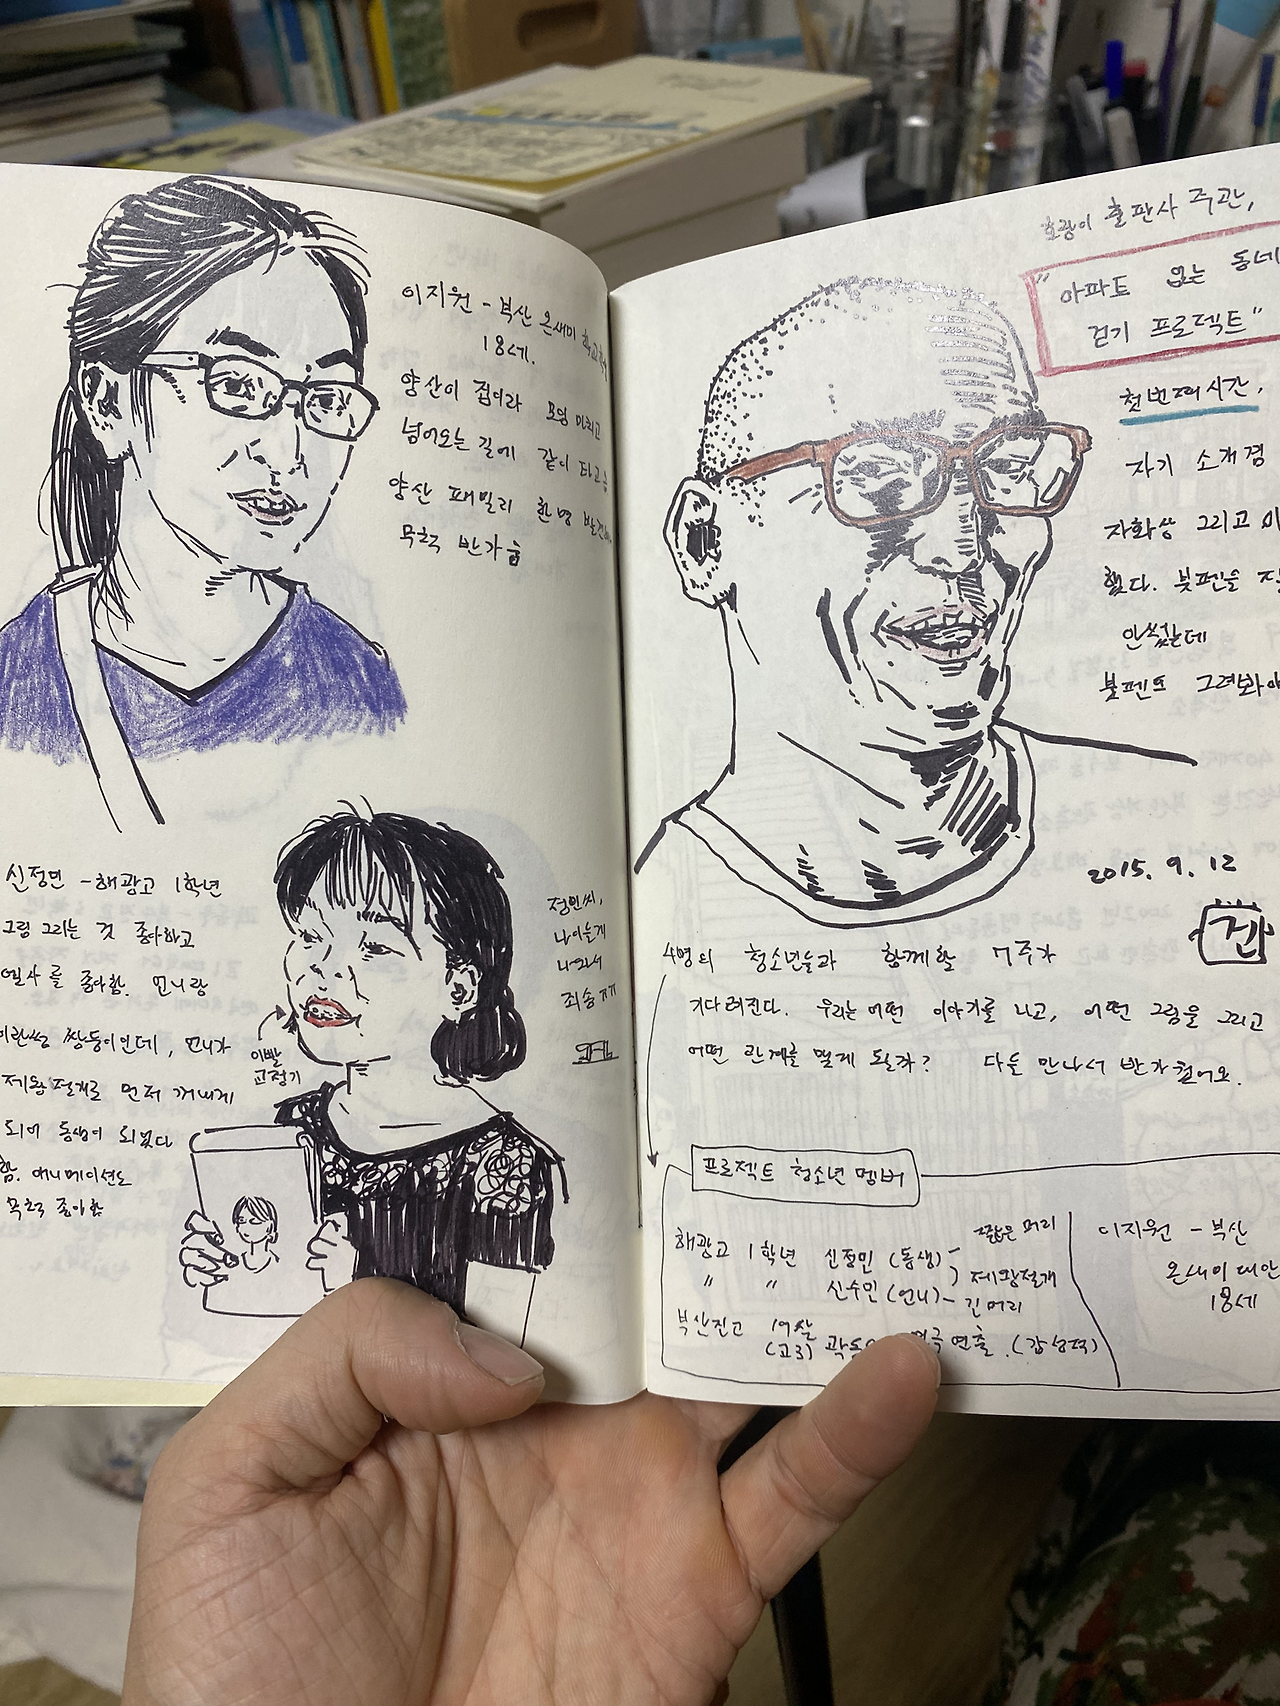 이지원 - 부산 온새미 학교
18세.
양산이 집이라 모임 마치고
넘어오는 길에 같이 타고옴
양산 패밀리 한명 발견
무척 반가움
신정민 - 해광고 1학년
그림 그리는 것 좋아하고
엘사를 좋아함. 언니랑
이란성 쌍둥이인데, 언니가
제왕절개로 먼저 꺼내게
되어 동생이 되었다
함. 애니메이션도
무척 좋아함
이빨
교정기
정민씨,
나이들게
나와서
죄송 ㅠㅠ
호랑이 출판사 주관,
"아파트 없는 동네
걷기 프로젝트"
첫번째시간,
자기 소개겸
자화상 그리고 이
했다. 붓펜을 잘
안썼는데
붓펜으로 그려봐야
2015. 9. 12
건
4명의 청소년들과 함께할 7주가
기다려진다. 우리는 어떤 이야기를 나누고, 어떤 그림을 그리고
어떤 관계를 맺게 될까? 다들 만나서 반가웠어요.
프로젝트 청소년 멤버
해광고 1학년 신정민 (동생) - 짧은 머리
" " 신수민 (언니) - 긴 머리
제왕절개
부산진고 19살
(고3) 연출. (감성적)
이지원 - 부산
온새미 대안
18세